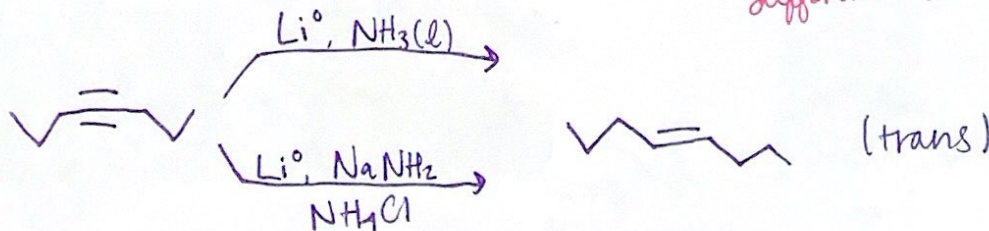 Li°, NH3(l)
Li°, NaNH2
NH4Cl
(trans)